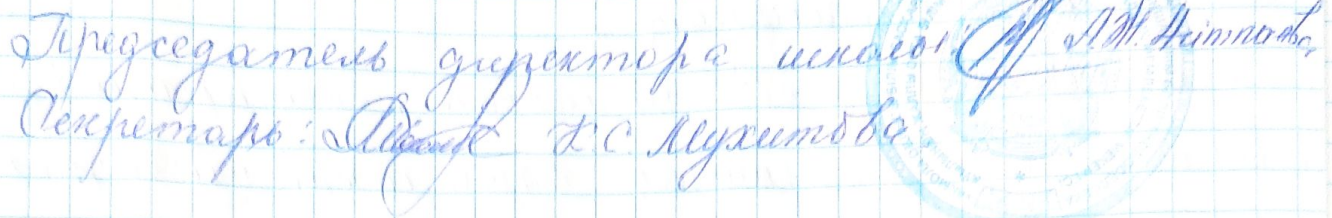 Председатель директора школы А.Ж. Айтпаева
Секретарь: К.С. Мухитова